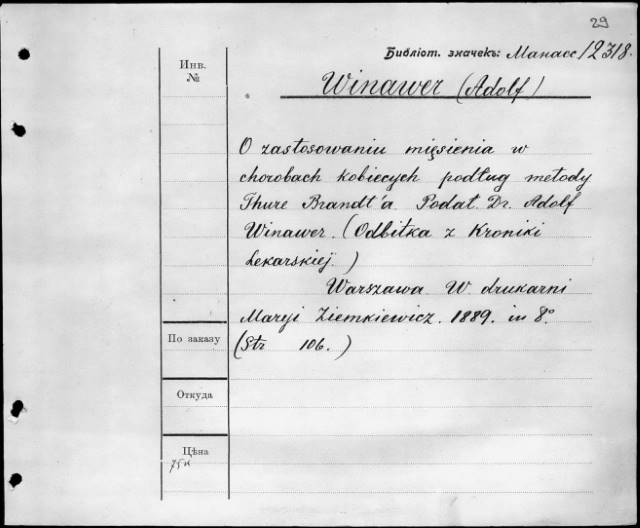 29
Библіот. значекъ: Манасс 12318.
Инв.
№
Winawer (Adolf)
O zastosowaniu mięsienia w
chorobach kobiecych podług metody
Thure Brandt'a. Podał. Dr. Adolf
Winawer. (Odbitka z Kroniki
Lekarskiej.)
Warszawa. W. drukarni
Maryi Ziemkiewicz. 1889. in 8º
(Str 106.)
По заказу
Откуда
Цѣна
75к